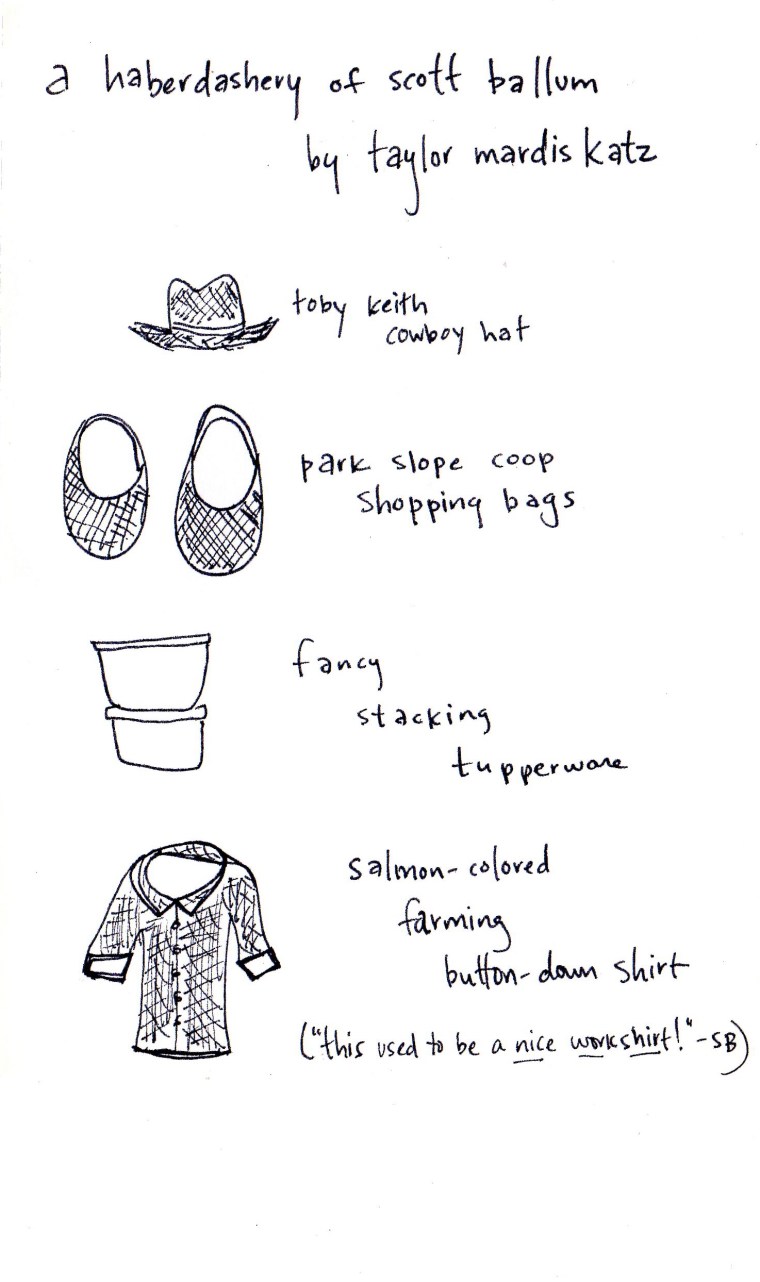 a haberdashery of scott ballum
by taylor mardis katz
toby keith
cowboy hat
park slope coop
shopping bags
fancy
stacking
tupperware
salmon-colored
farming
button-down shirt
("this used to be a nice workshirt!" - SB)